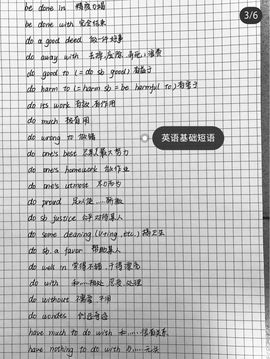 be done in 精疲力竭
3/6
be done with 完全结束
do a good deed 做一件好事
do away with 去掉,废除
do good to (= do sb good) 有益于
do harm to (= harm sb = be harmful to) 有害于
do its work 有效,有作用
do much 极有用
do wrong to 做错
英语基础短语
do one's best 尽某人最大努力
do one's homework 做作业
do one's utmost 尽力而为
do proud 足以使……骄傲
do sb justice 公平对待某人
do some cleaning (V+ing, etc.) 搞卫生
do sb. a favor 帮助某人
do well in 学得不错,干得漂亮
do with 和……相处,忍受,处理
do without 不需要,不用
do wonders 创造奇迹
have much to do with 和……很有关系
have nothing to do with 与……无关